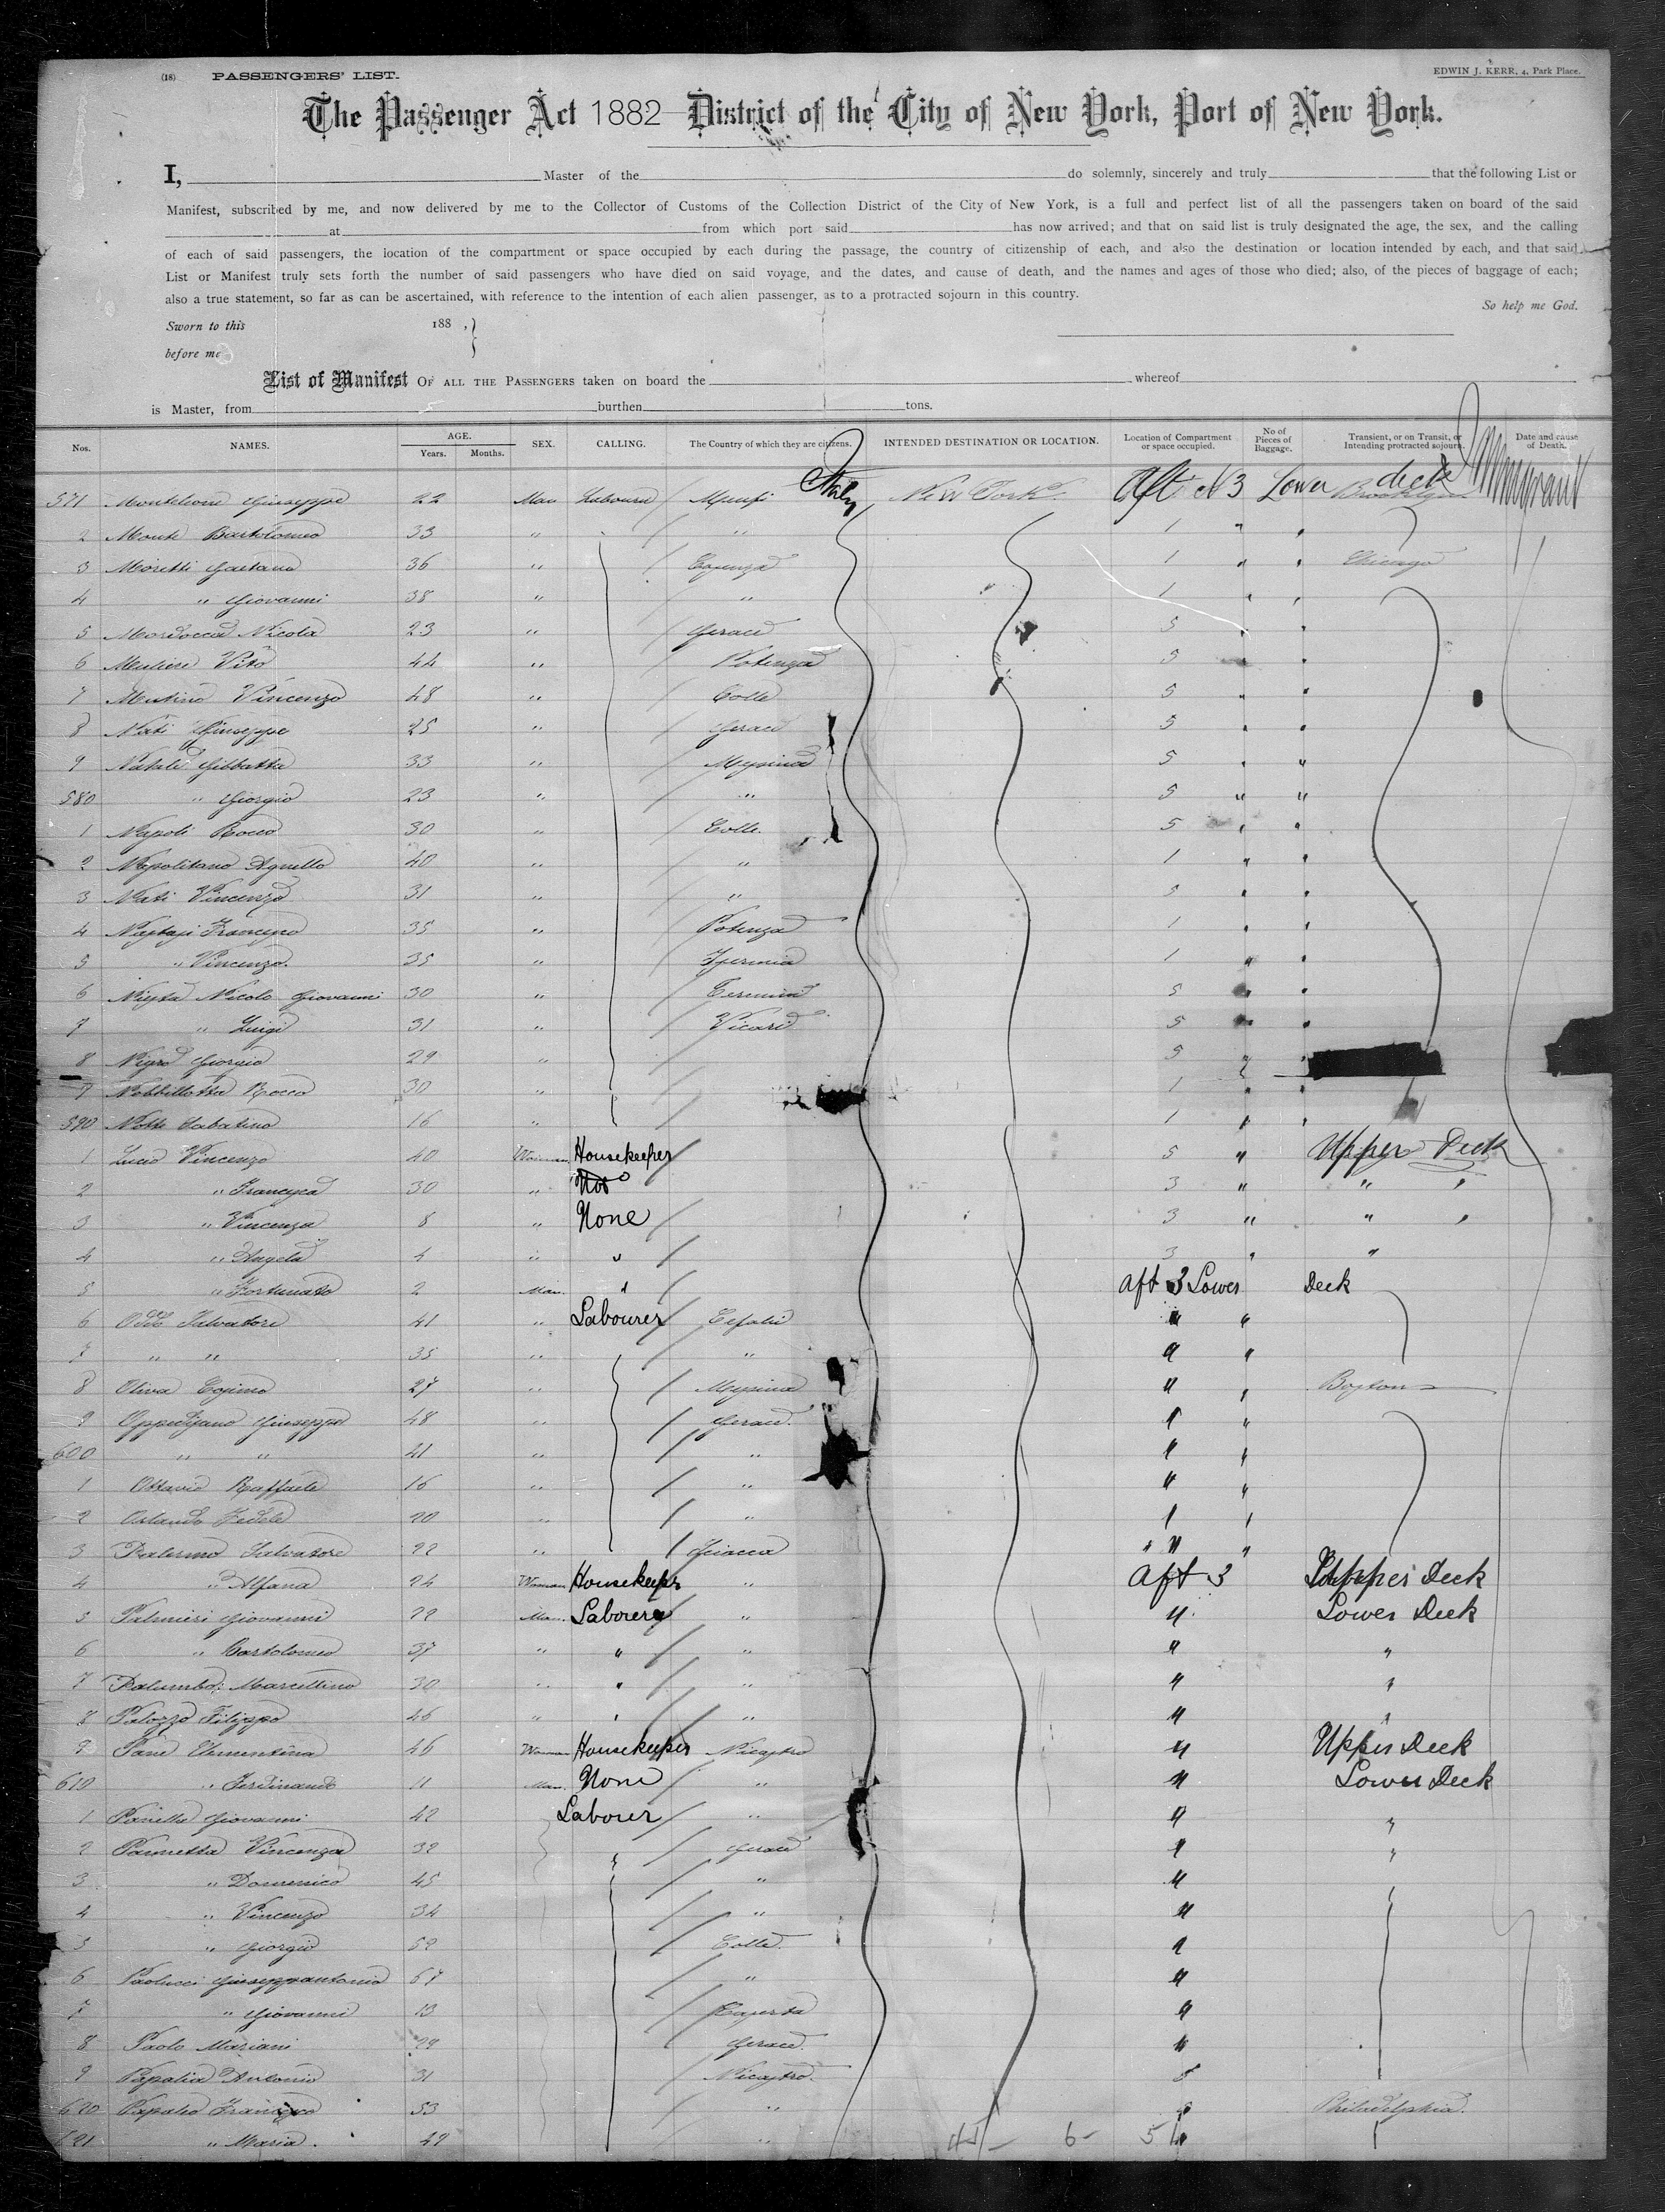 (18) PASSENGERS' LIST.
EDWIN J. KERR, 4, Park Place.
The Passenger Act 1882 District of the City of New York, Port of New York.
I, Master of the do solemnly, sincerely and truly that the following List or
Manifest, subscribed by me, and now delivered by me to the Collector of Customs of the Collection District of the City of New York, is a full and perfect list of all the passengers taken on board of the said
at from which port said has now arrived; and that on said list is truly designated the age, the sex, and the calling
of each of said passengers, the location of the compartment or space occupied by each during the passage, the country of citizenship of each, and also the destination or location intended by each, and that said
List or Manifest truly sets forth the number of said passengers who have died on said voyage, and the dates, and cause of death, and the names and ages of those who died; also, of the pieces of baggage of each;
also a true statement, so far as can be ascertained, with reference to the intention of each alien passenger, as to a protracted sojourn in this country.
So help me God.
Sworn to this 188 , }
before me
List of Manifest OF ALL THE PASSENGERS taken on board the whereof
is Master, from burthen tons.
Nos. NAMES. AGE. Years. Months. SEX. CALLING. The Country of which they are citizens. INTENDED DESTINATION OR LOCATION. Location of Compartment or space occupied. No of Pieces of Baggage. Transient, or on Transit, or Intending protracted sojourn. Date and cause of Death.
571 Montelione Giuseppe 22 Man Labourer Menfi Italy New York Aft N3 Lower deck Brooklyn Immigrant
2 Monte Bartolomeo 33 " " 1 " "
3 Moretti Gaetano 36 " Cosenza 1 " " Chicago
4 " Giovanni 38 " " 1 " "
5 Mordocca Nicola 23 " Gerace 5 " "
6 Vito 44 " Potenza 5 " "
7 Vincenzo 48 " Colle 5 " "
8 Nati Giuseppe 25 " Gerace 5 " "
9 Natale Gibbatta 33 " Messina 5 " "
580 " Giorgio 23 " " 5 " "
1 Napoli Rocco 30 " Colle 5 " "
2 Napolitano Agnello 40 " " 1 " "
3 Nati Vincenzo 31 " " 5 " "
4 Nastasi Francesco 35 " Potenza 1 " "
5 " Vincenzo 35 " Isernia 1 " "
6 Nicolo Giovanni 30 " 5 " "
7 " Luigi 31 " Vicari 5 " "
8 Nigro Giorgio 29 " 5 " "
9 Nobbillotta Rocco 30 " 1 " "
590 Notte Sabatino 16 " 1 " "
1 Lucia Vincenzo 40 Woman Housekeeper 5 " Upper Deck
2 " Francesca 30 " 3 " " "
3 " Vincenza 8 " None 3 " " "
4 " Angela 4 " " 3 " "
5 " Fortunato 2 Man " Aft 3 Lower Deck
6 Oddo Salvatore 41 " Labourer Cefalu " "
7 " " 35 " " " "
8 Oliva Cosimo 27 " Messina " " Boston
9 Oppedisano Giuseppe 48 " Gerace " "
600 " " 41 " " " "
1 Ottavio Raffaele 16 " " " "
2 Orlando Fedele 20 " " " "
3 Palermo Salvatore 22 " Sciacca " " "
4 " Alfana 24 Woman Housekeeper " Aft 3 Upper Deck
5 Palmieri Giovanni 22 Man Labourer " " Lower Deck
6 " Bartolomeo 37 " " " " "
7 Palumbo Marcellino 30 " " " " "
8 Palozzo Filippo 46 " " " " "
9 Pane Clementina 46 Woman Housekeeper Nicastro " Upper Deck
610 " Ferdinando 11 Man None " " Lower Deck
1 Panella Giovanni 42 Labourer " " "
2 Pannetta Vincenza 32 Gerace " "
3 " Domenico 45 " "
4 " Vincenzo 34 " "
5 " Giorgio 52 Colle "
6 Paolucci Giuseppantonio 67 " "
7 " Giovanni 13 Caserta "
8 Paolo Mariani 29 Gerace "
9 Papalia Antonio 31 Nicastro "
620 Papaleo Francesco 53 " " Philadelphia
621 " Maria 42 "